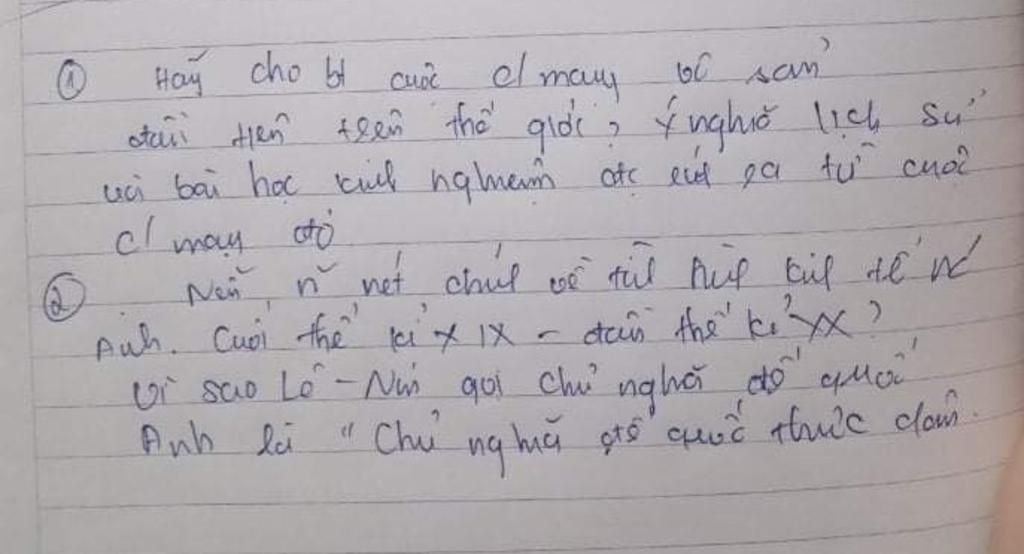 ① Hãy cho bt cuộc c/ mạng vô sản
đầu tiên trên thế giới? Ý nghĩa lịch sử
và bài học kinh nghiệm đc rút ra từ cuộc
c/ mạng đó
② Nêu n~ nét chính về tình hình kinh tế nc
Anh. Cuối thế kỉ XIX - đầu thế kỉ XX?
Vì sao Lê-Nin gọi chủ nghĩa đế quốc
Anh là "Chủ nghĩa đế quốc thực dân.